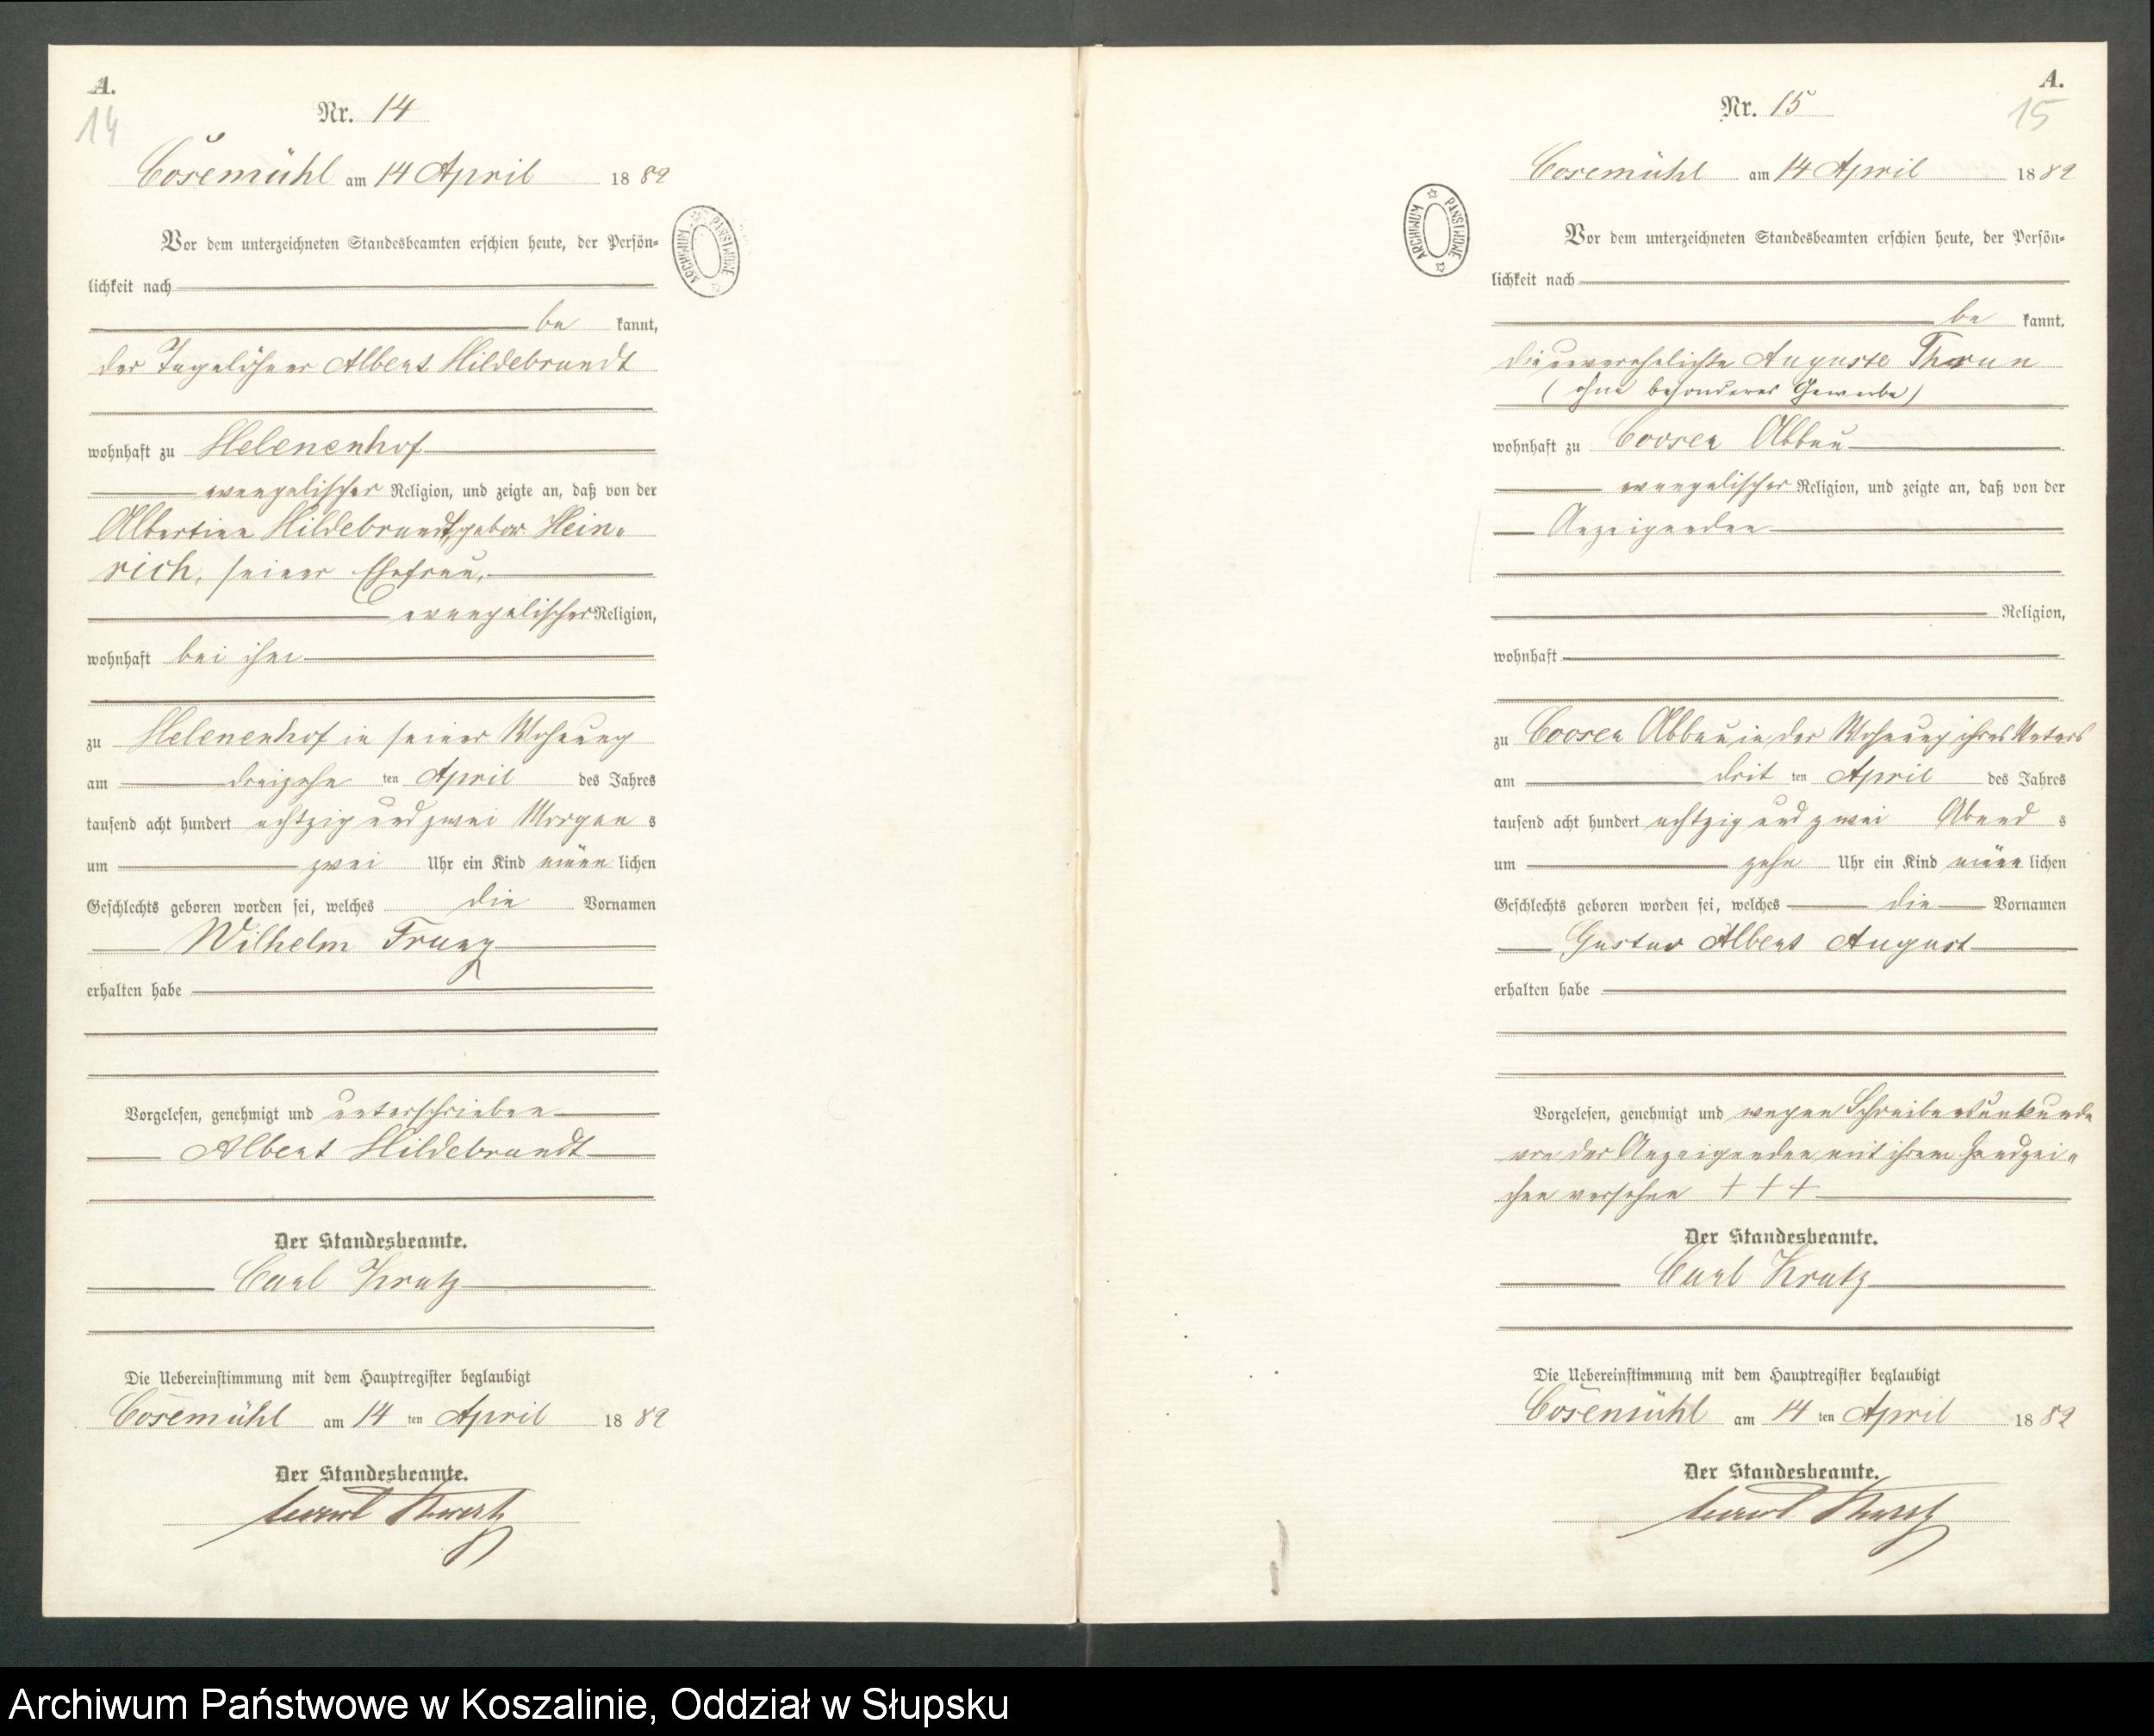 A.
14
Nr. 14
Cosemühl am 14 April 1882
Vor dem unterzeichneten Standesbeamten erschien heute, der Persön-
lichkeit nach
be kannt,
der Tagelöhner Albert Hildebrandt
wohnhaft zu Helenenhof
evangelischer Religion, und zeigte an, daß von der
Albertine Hildebrandt, gebor Hein-
rich, seiner Ehefrau,
evangelischer Religion,
wohnhaft bei ihm
zu Helenenhof in seiner Wohnung
am dreizehn ten April des Jahres
tausend acht hundert achtzig und zwei Morgen s
um zwei Uhr ein Kind männ lichen
Geschlechts geboren worden sei, welches die Vornamen
Wilhelm Franz
erhalten habe
Vorgelesen, genehmigt und unterschrieben
Albert Hildebrandt
Der Standesbeamte.
Carl Kratz
Die Uebereinstimmung mit dem Hauptregister beglaubigt
Cosemühl am 14 ten April 1882
Der Standesbeamte.
Carl Kratz
ARCHIWUM PAŃSTWOWE
A.
15
Nr. 15
Cosemühl am 14 April 1882
Vor dem unterzeichneten Standesbeamten erschien heute, der Persön-
lichkeit nach
be kannt,
die unverehelichte Auguste Thrun
(ohne besonderes Gewerbe)
wohnhaft zu Coosen Abbau
evangelischer Religion, und zeigte an, daß von der
Anzeigenden
Religion,
wohnhaft
zu Coosen Abbau in der Wohnung ihres Vaters
am drit ten April des Jahres
tausend acht hundert achtzig und zwei Abend s
um zehn Uhr ein Kind männ lichen
Geschlechts geboren worden sei, welches die Vornamen
Gustav Albert August
erhalten habe
Vorgelesen, genehmigt und wegen Schreibensunkunde
von der Anzeigenden mit ihrem Handzei-
chen versehen + + +
Der Standesbeamte.
Carl Kratz
Die Uebereinstimmung mit dem Hauptregister beglaubigt
Cosemühl am 14 ten April 1882
Der Standesbeamte.
Carl Kratz
ARCHIWUM PAŃSTWOWE
Archiwum Państwowe w Koszalinie, Oddział w Słupsku